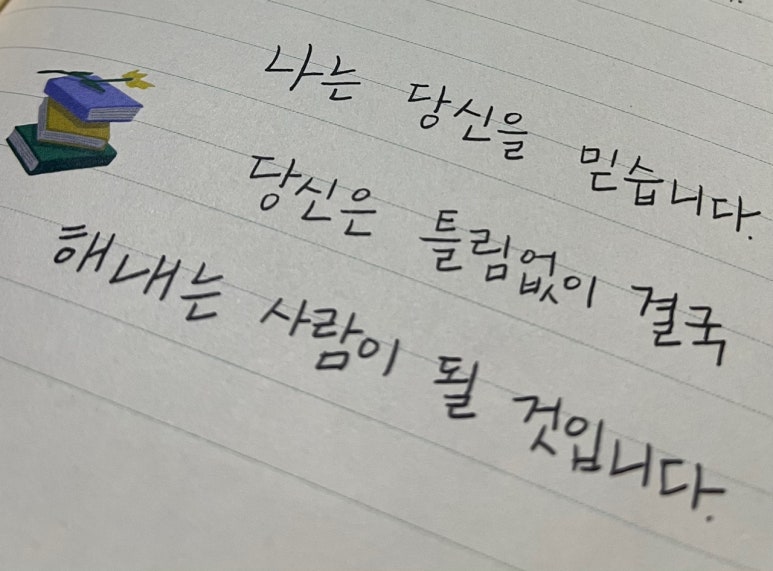 나는 당신을 믿습니다.
당신은 틀림없이 결국
해내는 사람이 될 것입니다.